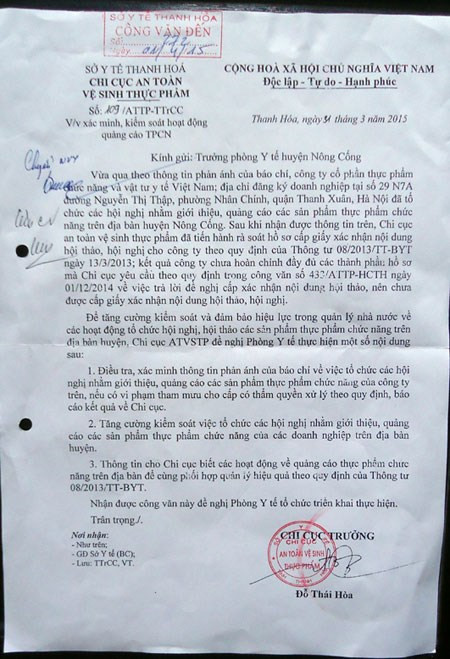 SỞ Y TẾ THANH HÓA
CÔNG VĂN ĐẾN
SỞ Y TẾ THANH HOÁ
CHI CỤC AN TOÀN
VỆ SINH THỰC PHẨM
Số: 109/ATTP-TTrCC
V/v xác minh, kiểm soát hoạt động
quảng cáo TPCN
CỘNG HOÀ XÃ HỘI CHỦ NGHĨA VIỆT NAM
Độc lập - Tự do - Hạnh phúc
Thanh Hóa, ngày 31 tháng 3 năm 2015
Kính gửi: Trưởng phòng Y tế huyện Nông Cống
Vừa qua theo thông tin phản ánh của báo chí, công ty cổ phần thực phẩm
chức năng và vật tư y tế Việt Nam; địa chỉ đăng ký doanh nghiệp tại số 29 N7A
đường Nguyễn Thị Thập, phường Nhân Chính, quận Thanh Xuân, Hà Nội đã tổ
chức các hội nghị nhằm giới thiệu, quảng cáo các sản phẩm thực phẩm chức
năng trên địa bàn huyện Nông Cống. Sau khi nhận được thông tin trên, Chi cục
an toàn vệ sinh thực phẩm đã tiến hành rà soát hồ sơ cấp giấy xác nhận nội dung
hội thảo, hội nghị cho công ty theo quy định của Thông tư 08/2013/TT-BYT
ngày 13/3/2013; kết quả công ty chưa hoàn chỉnh đầy đủ các thành phần hồ sơ
mà Chi cục yêu cầu theo quy định trong công văn số 433/ATTP-HCTH ngày
01/12/2014 về việc trả lời đề nghị cấp xác nhận nội dung hội thảo, nên chưa
được cấp giấy xác nhận nội dung hội thảo, hội nghị.
Để tăng cường kiểm soát và đảm bảo hiệu lực trong quản lý nhà nước về
các hoạt động tổ chức hội nghị, hội thảo các sản phẩm thực phẩm chức năng trên
địa bàn huyện, Chi cục ATVSTP đề nghị Phòng Y tế thực hiện một số nội dung
sau:
1. Điều tra, xác minh thông tin phản ánh của báo chí về việc tổ chức các hội
nghị nhằm giới thiệu, quảng cáo các sản phẩm thực phẩm chức năng của công ty
trên, nếu có vi phạm tham mưu cho cấp có thẩm quyền xử lý theo quy định, báo
cáo kết quả về Chi cục.
2. Tăng cường kiểm soát việc tổ chức các hội nghị nhằm giới thiệu, quảng
cáo các sản phẩm thực phẩm chức năng của các doanh nghiệp trên địa bàn
huyện.
3. Thông tin cho Chi cục biết các hoạt động về quảng cáo thực phẩm chức
năng trên địa bàn để cùng phối hợp quản lý hiệu quả theo quy định của Thông tư
08/2013/TT-BYT.
Nhận được công văn này đề nghị Phòng Y tế tổ chức triển khai thực hiện.
Trân trọng./.
Nơi nhận:
- Như trên;
- GĐ Sở Y tế (BC);
- Lưu: TTrCC, VT.
CHI CỤC TRƯỞNG
CHI CỤC
AN TOÀN VỆ SINH
THỰC PHẨM
Đỗ Thái Hòa